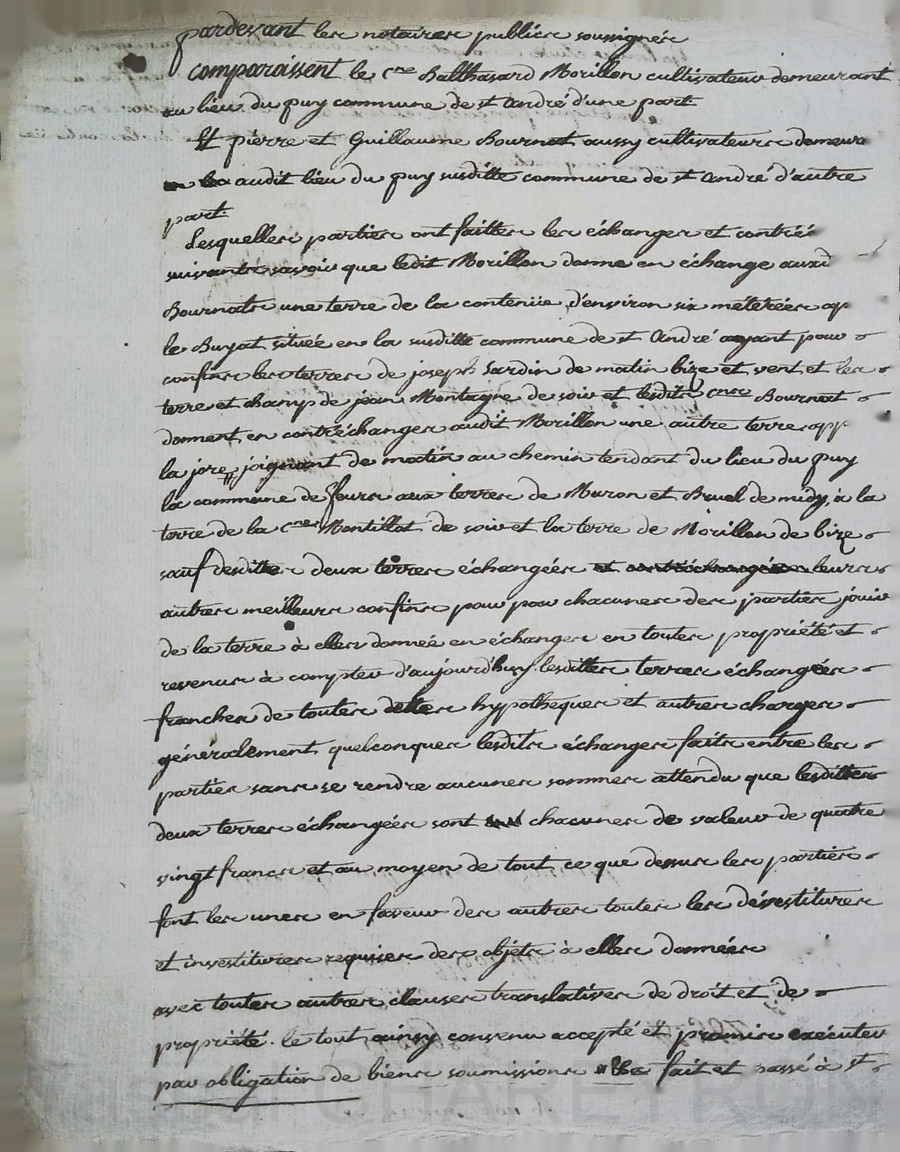 pardevant les notaires publics soussignés
comparoissent le c.ne Balthasard Morillon cultivateur demeurant
au lieu du puy commune de st andré d'une part
Et pierre et Guillaume Bournat aussy cultivateurs demeur
audit lieu du puy susditte commune de st andré d'autre
part
Lesquelles parties ont faittes les échanges et contréé
suivants savoir que ledit Morillon donne en échange auxd
Bournats une terre de la contenüe d'environ six meterées ap
le Buyat située en la susditte commune de st André ayant pour
confins les terres de joseph Sardin de matin bize et vent et les
terre et champ de jean Montagne de soir et lesdits c.nes Bournat
donnent en contréchanges audit Morillon une autre terre app
la jore joignant de matin au chemin tendant du lieu du puy
la commune de fours aux terres de Muron et Bruel de midy, à la
terre de la c.ne Montillat de soir et la terre de Morillon de bize
sauf desdittes deux terres échangées et contréchangées leurs
autres meilleurs confins pour par chacunes des parties jouir
de la terre à elles donnée en échanges en toutes propriété et
revenus à compter d'aujourd'huy lesdittes terres échangées
franches de toutes dettes hypotheques et autres charges
généralement quelconques lesdits échanges faits entre les
parties sans se rendre aucunes sommes attendu que lesdittes
deux terres échangées sont chacunes de valeur de quatre
vingt francs et au moyen de tout ce que dessus les parties
font les unes en faveur des autres toutes les dévestitures
et investitures requises des objets à elles données
avec toutes autres clauses translatives de droit et de
propriété. le tout ainsy convenu accepté et promis exécuter
par obligation de biens soumissions fait et passé à st
CHAREYRON